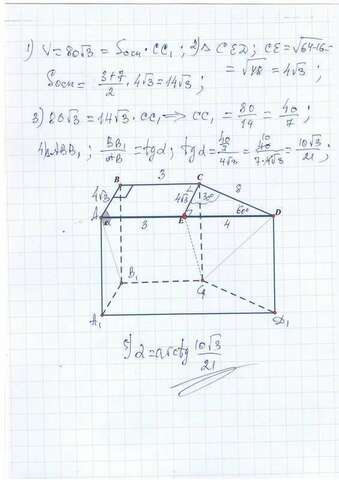 1) V = 80√3 = Sосн · CC₁ ; 2) △ CED ; CE = √64-16 =
Sосн = (3+7)/2 · 4√3 = 14√3 ; = √48 = 4√3 ;
3) 80√3 = 14√3 · CC₁ ⟹ CC₁ = 80/14 = 40/7 ;
4) △ABB₁ ; BB₁/AB = tgα ; tgα = (40/7)/(4√3) = 40/(7·4√3) = 10√3/21 ;
B 3 C
4√3 4√3 30° 8
A α 3 E 4 60° D
B₁ C₁
A₁ D₁
5) α = arctg 10√3/21